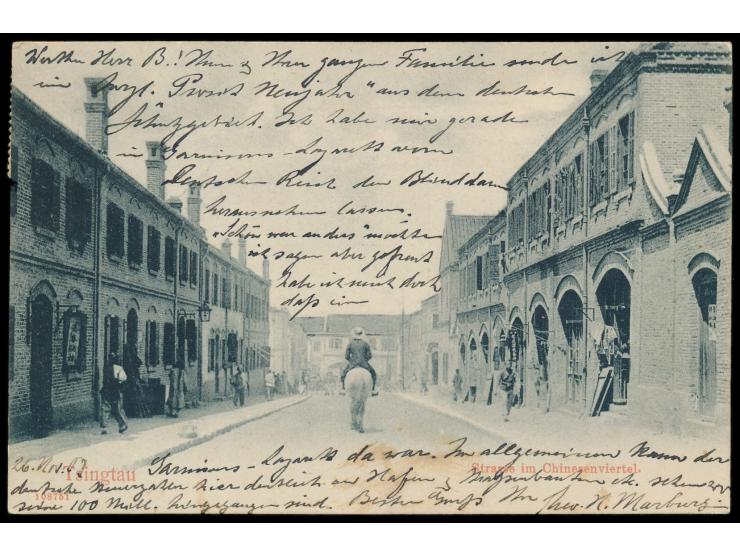 Werther Herr B.! Ihnen & Ihrer ganzen Familie sende ich
ein herzl. "Prosit Neujahr" aus dem deutschen
Schutzgebiet. Ich habe mir gerade
im Garnisons-Lazarett vom
Deutschen Reich den Blinddarm
herausnehmen lassen.
"Schön war anders" möchte
ich sagen aber gefreut
habe ich mich doch
daß ein
Garnisons-Lazarett da war. Im allgemeinen kann der
deutsche Steuerzahler hier deutlich an Hafen & Straßenbauten etc. sehen wo
seine 100 Mill. hingegangen sind. Besten Gruß Ihr H. Marburg
26. Nov.
Tsingtau
108751
Strasse im Chinesenviertel.